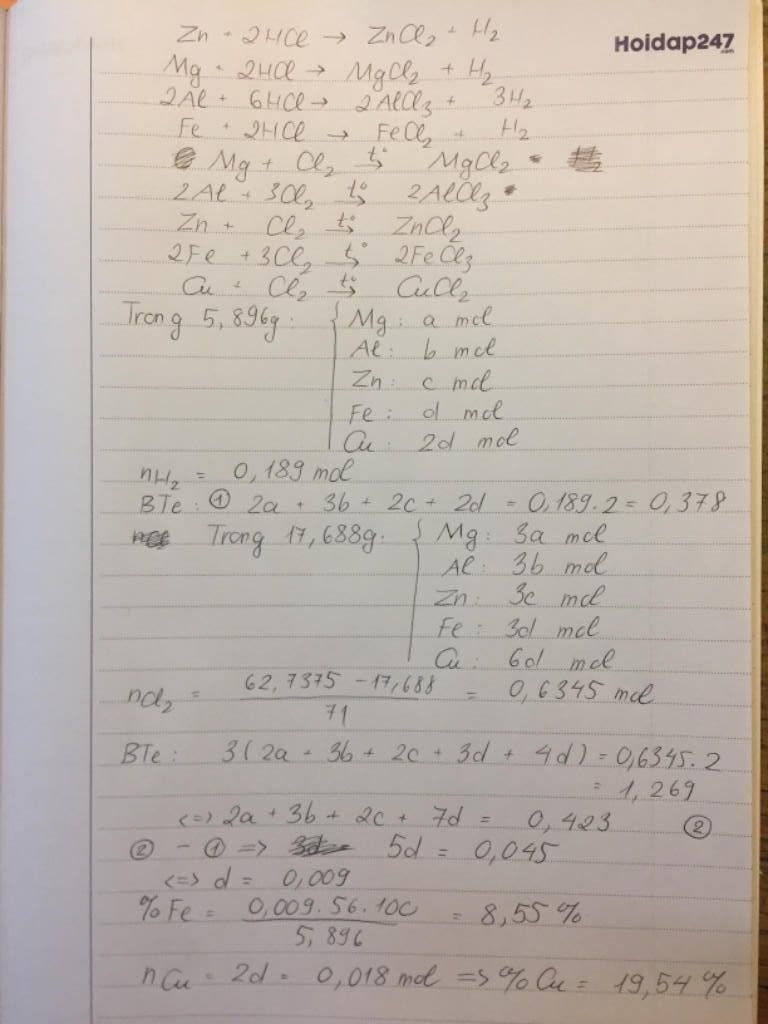 Hoidap247
.com
Zn + 2HCl → ZnCl₂ + H₂
Mg + 2HCl → MgCl₂ + H₂
2Al + 6HCl → 2AlCl₃ + 3H₂
Fe + 2HCl → FeCl₂ + H₂
Mg + Cl₂ t°→ MgCl₂
2Al + 3Cl₂ t°→ 2AlCl₃
Zn + Cl₂ t°→ ZnCl₂
2Fe + 3Cl₂ t°→ 2FeCl₃
Cu + Cl₂ t°→ CuCl₂
Trong 5,896g: { Mg: a mol
Al: b mol
Zn: c mol
Fe: d mol
Cu: 2d mol
nH₂ = 0,189 mol
BTe: ① 2a + 3b + 2c + 2d = 0,189.2 = 0,378
Trong 17,688g: { Mg: 3a mol
Al: 3b mol
Zn: 3c mol
Fe: 3d mol
Cu: 6d mol
nCl₂ = (62,7375 - 17,688) / 71 = 0,6345 mol
BTe: 3(2a + 3b + 2c + 3d + 4d) = 0,6345.2
= 1,269
<=> 2a + 3b + 2c + 7d = 0,423 ②
② - ① => 5d = 0,045
<=> d = 0,009
%Fe = 0,009.56.100 / 5,896 = 8,55 %
nCu = 2d = 0,018 mol => %Cu = 19,54 %